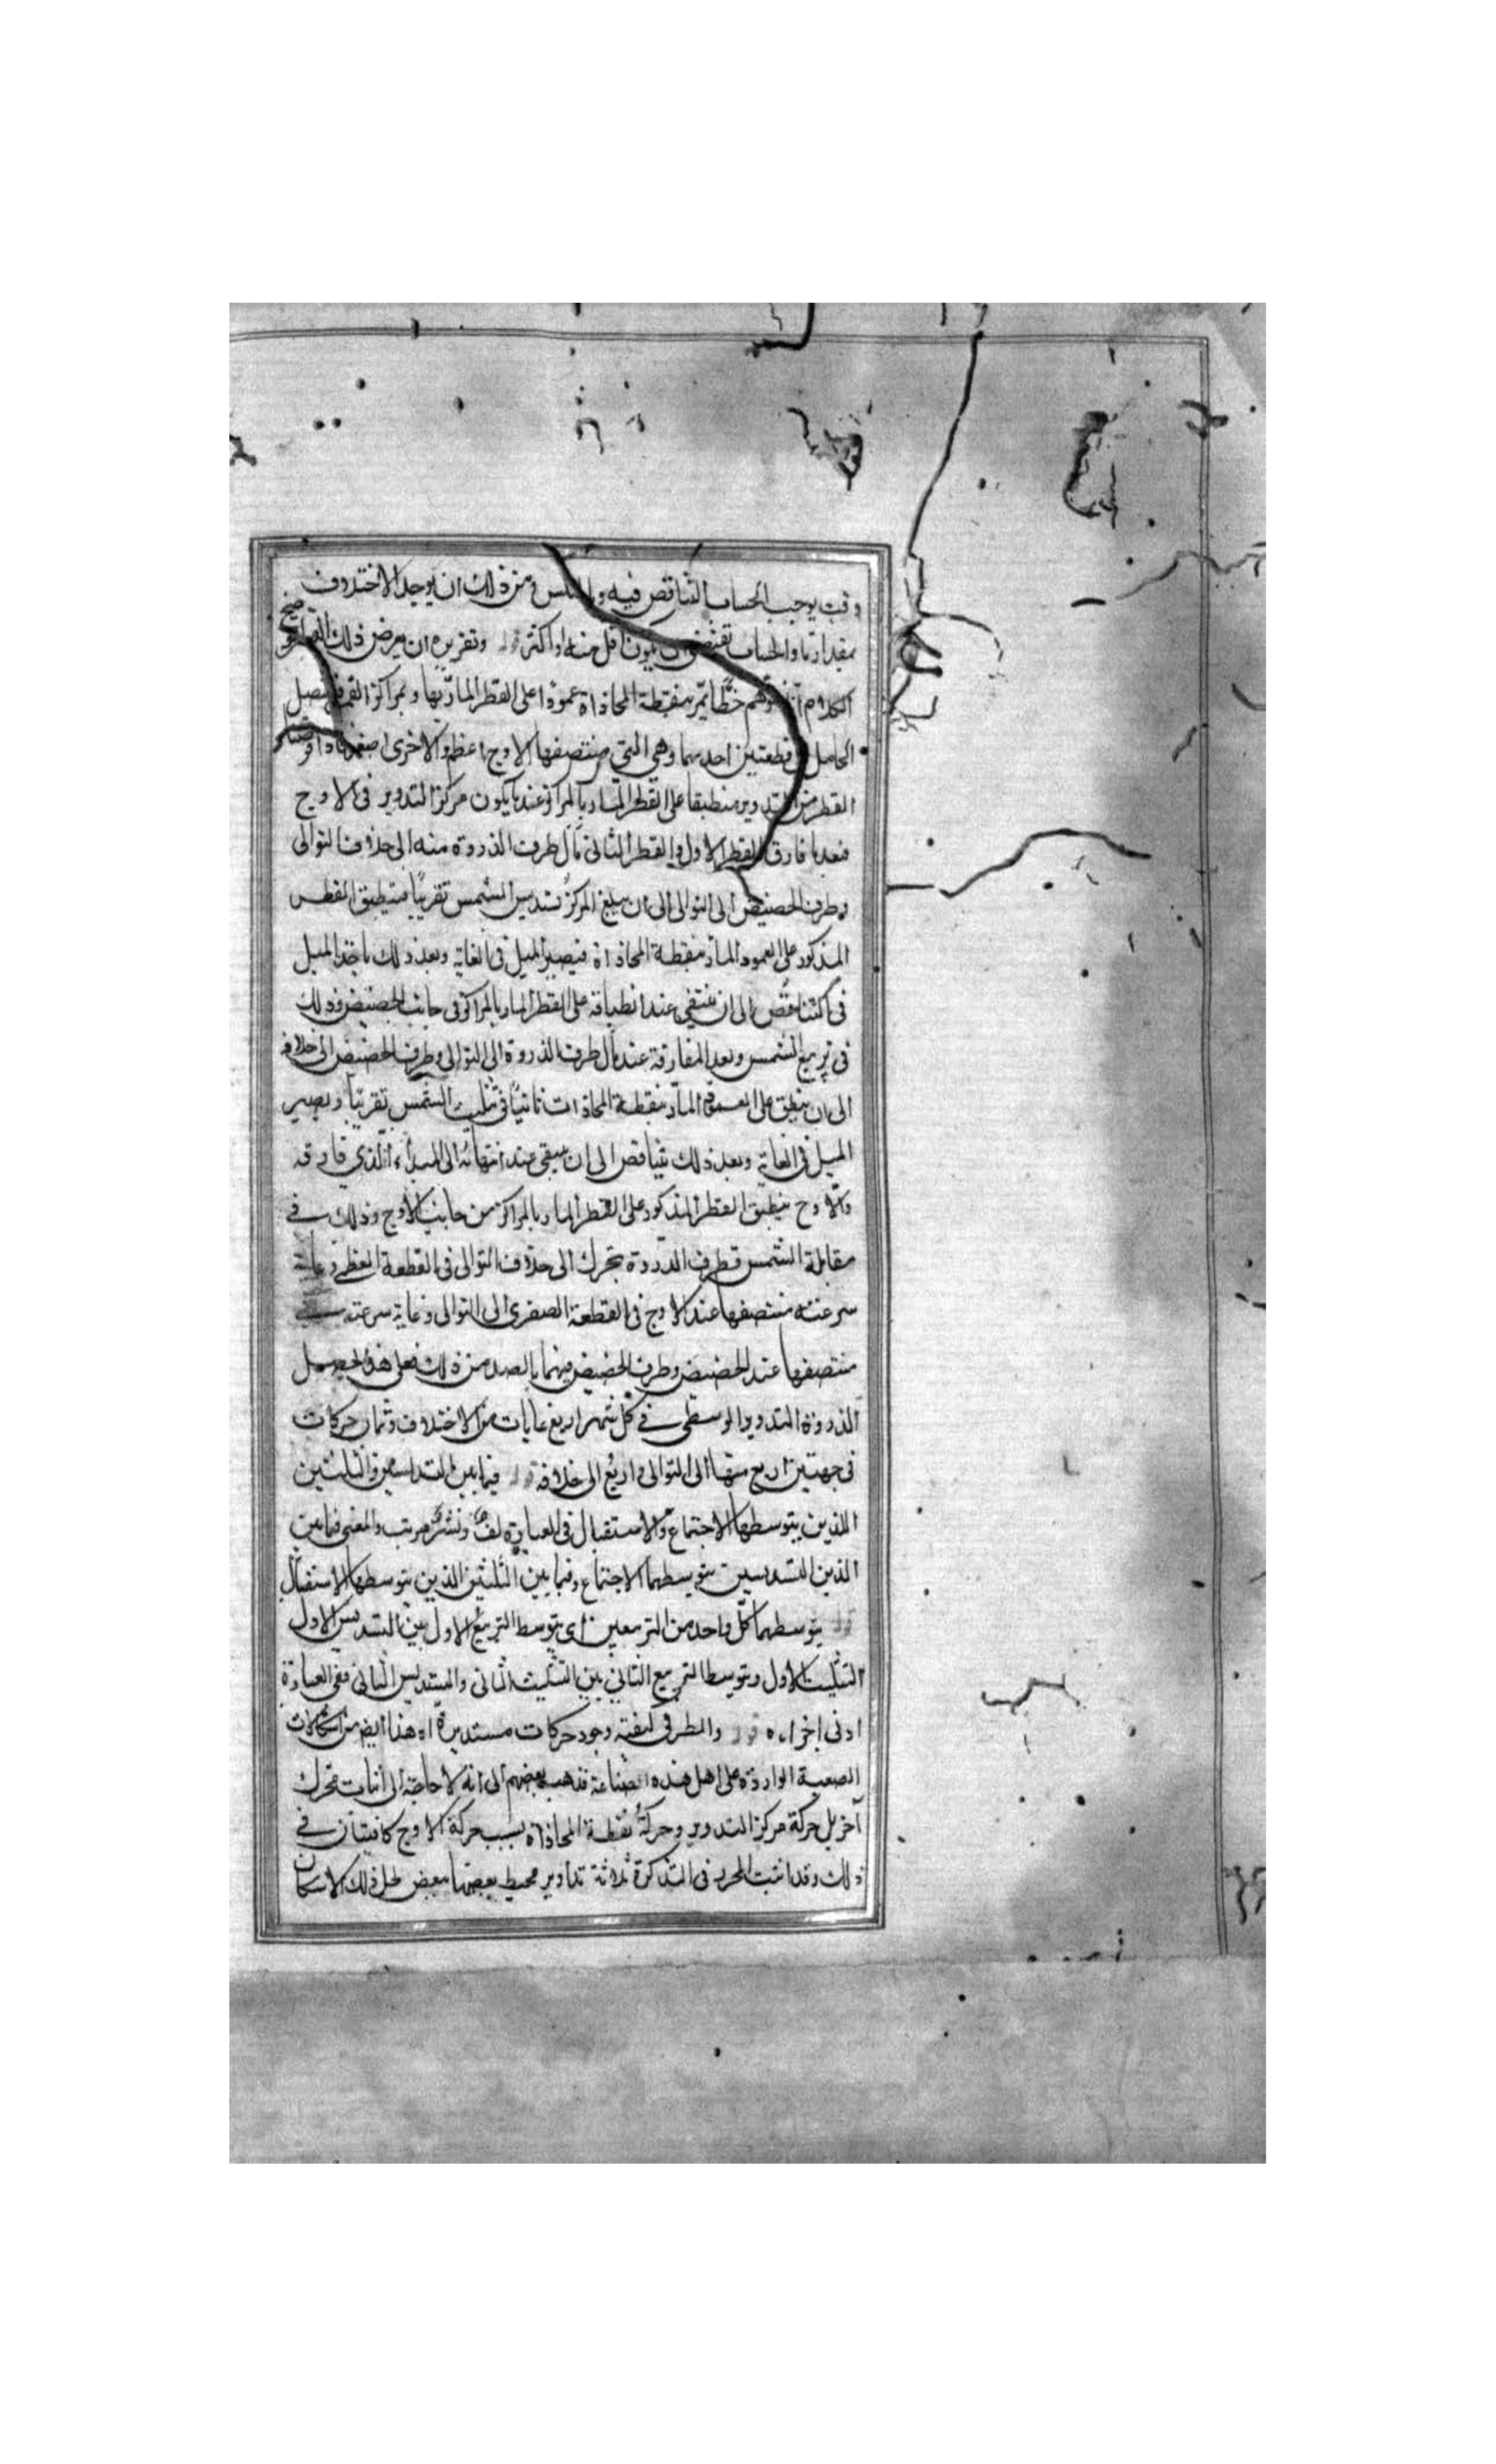 وقت يوجب الحساب التناقص فيه و من ذلك ان يوجد الاختلاف
بمقدار ما والحساب تقتضى ان يكون اقل منه او اكثر قوله وتقريره ان يعرض ذلك
الكلام خطا يمر بنقطة المحاذاة عمودا على القطر المار بها وبمراكز القمر
الحامل قطعتين احديهما وهى التى منتصفها الاوج اعظم والاخرى اصغر
القطر من التدوير منطبقا على القطر المار بالمراكز عند ما يكون مركز التدوير فى الاوج
فبعد ما فارق القطر الاول والقطر الثانى مال طرف الذروة منه الى خلاف التوالى
وطرف الحضيض الى التوالى الى ان يبلغ المركز تسديس الشمس تقريبا فينطبق القطر
المذكور على العمود المار بنقطة المحاذاة فيصير الميل فى الغاية وبعد ذلك ياخذ الميل
فى التناقص الى ان ينتفى عند انطباقه على القطر المار بالمراكز فى جانب الحضيض وذلك
فى تربيع الشمس وبعد المفارقة عند مال طرف الذروة الى التوالى وطرف الحضيض الى خلافه
الى ان ينطبق على العمود المار بنقطة المحاذات ثانيا فى تثليث الشمس تقريبا ويصير
الميل فى الغاية وبعد ذلك يتناقص الى ان يبقى عند انتهائه الى المبداء الذي فارقه
والاوج ينطبق القطر المذكور على القطر المار بالمراكز من جانب الاوج وذلك فى
مقابلة الشمس فطرف الذروة يتحرك الى خلاف التوالى فى القطعة العظمى وغاية
سرعته منتصفها عند الاوج فى القطعة الصغرى الى التوالى وغاية سرعته فى
منتصفها عند الحضيض وطرف الحضيض فيهما بالضد من ذلك فعلى هذا يحصل
الذروة التدوير الوسطى فى كل شهر اربع غايات من الاختلاف وثمان حركات
فى جهتين اربع منها الى التوالى واربع الى خلافه قوله فيما بين التسديسين والتثليثين
اللذين يتوسطها الاجتماع والاستقبال فى العبارة لف ونشر مرتب والمعنى فيما بين
الذين التسديسين يتوسطهما الاجتماع وفيما بين التثليثين الذين يتوسطها الاستقبال
قوله يتوسطهما كل واحد من التربيعين اى يتوسط التربيع الاول بين التسديس الاول
التثليث الاول ويتوسط التربيع الثانى بين التثليث الثانى والتسديس الثانى ففى العبارة
ادنى اخراه قوله والنظر فى كيفية وجود حركات مستديرة اه هذا ايض من اشكالات
الصعبة الواردة على اهل هذه الصناعة فذهب بعضهم الى انه لا حاجة الى اثبات محرك
آخر بل حركة مركز التدوير وحركة نقطة المحاذاة بسبب حركة الاوج كافيتان فى
ذلك وقد اثبت المحرر فى التذكرة ثلاثة تداوير محيط بعضها ببعض لحل ذلك الاشكال